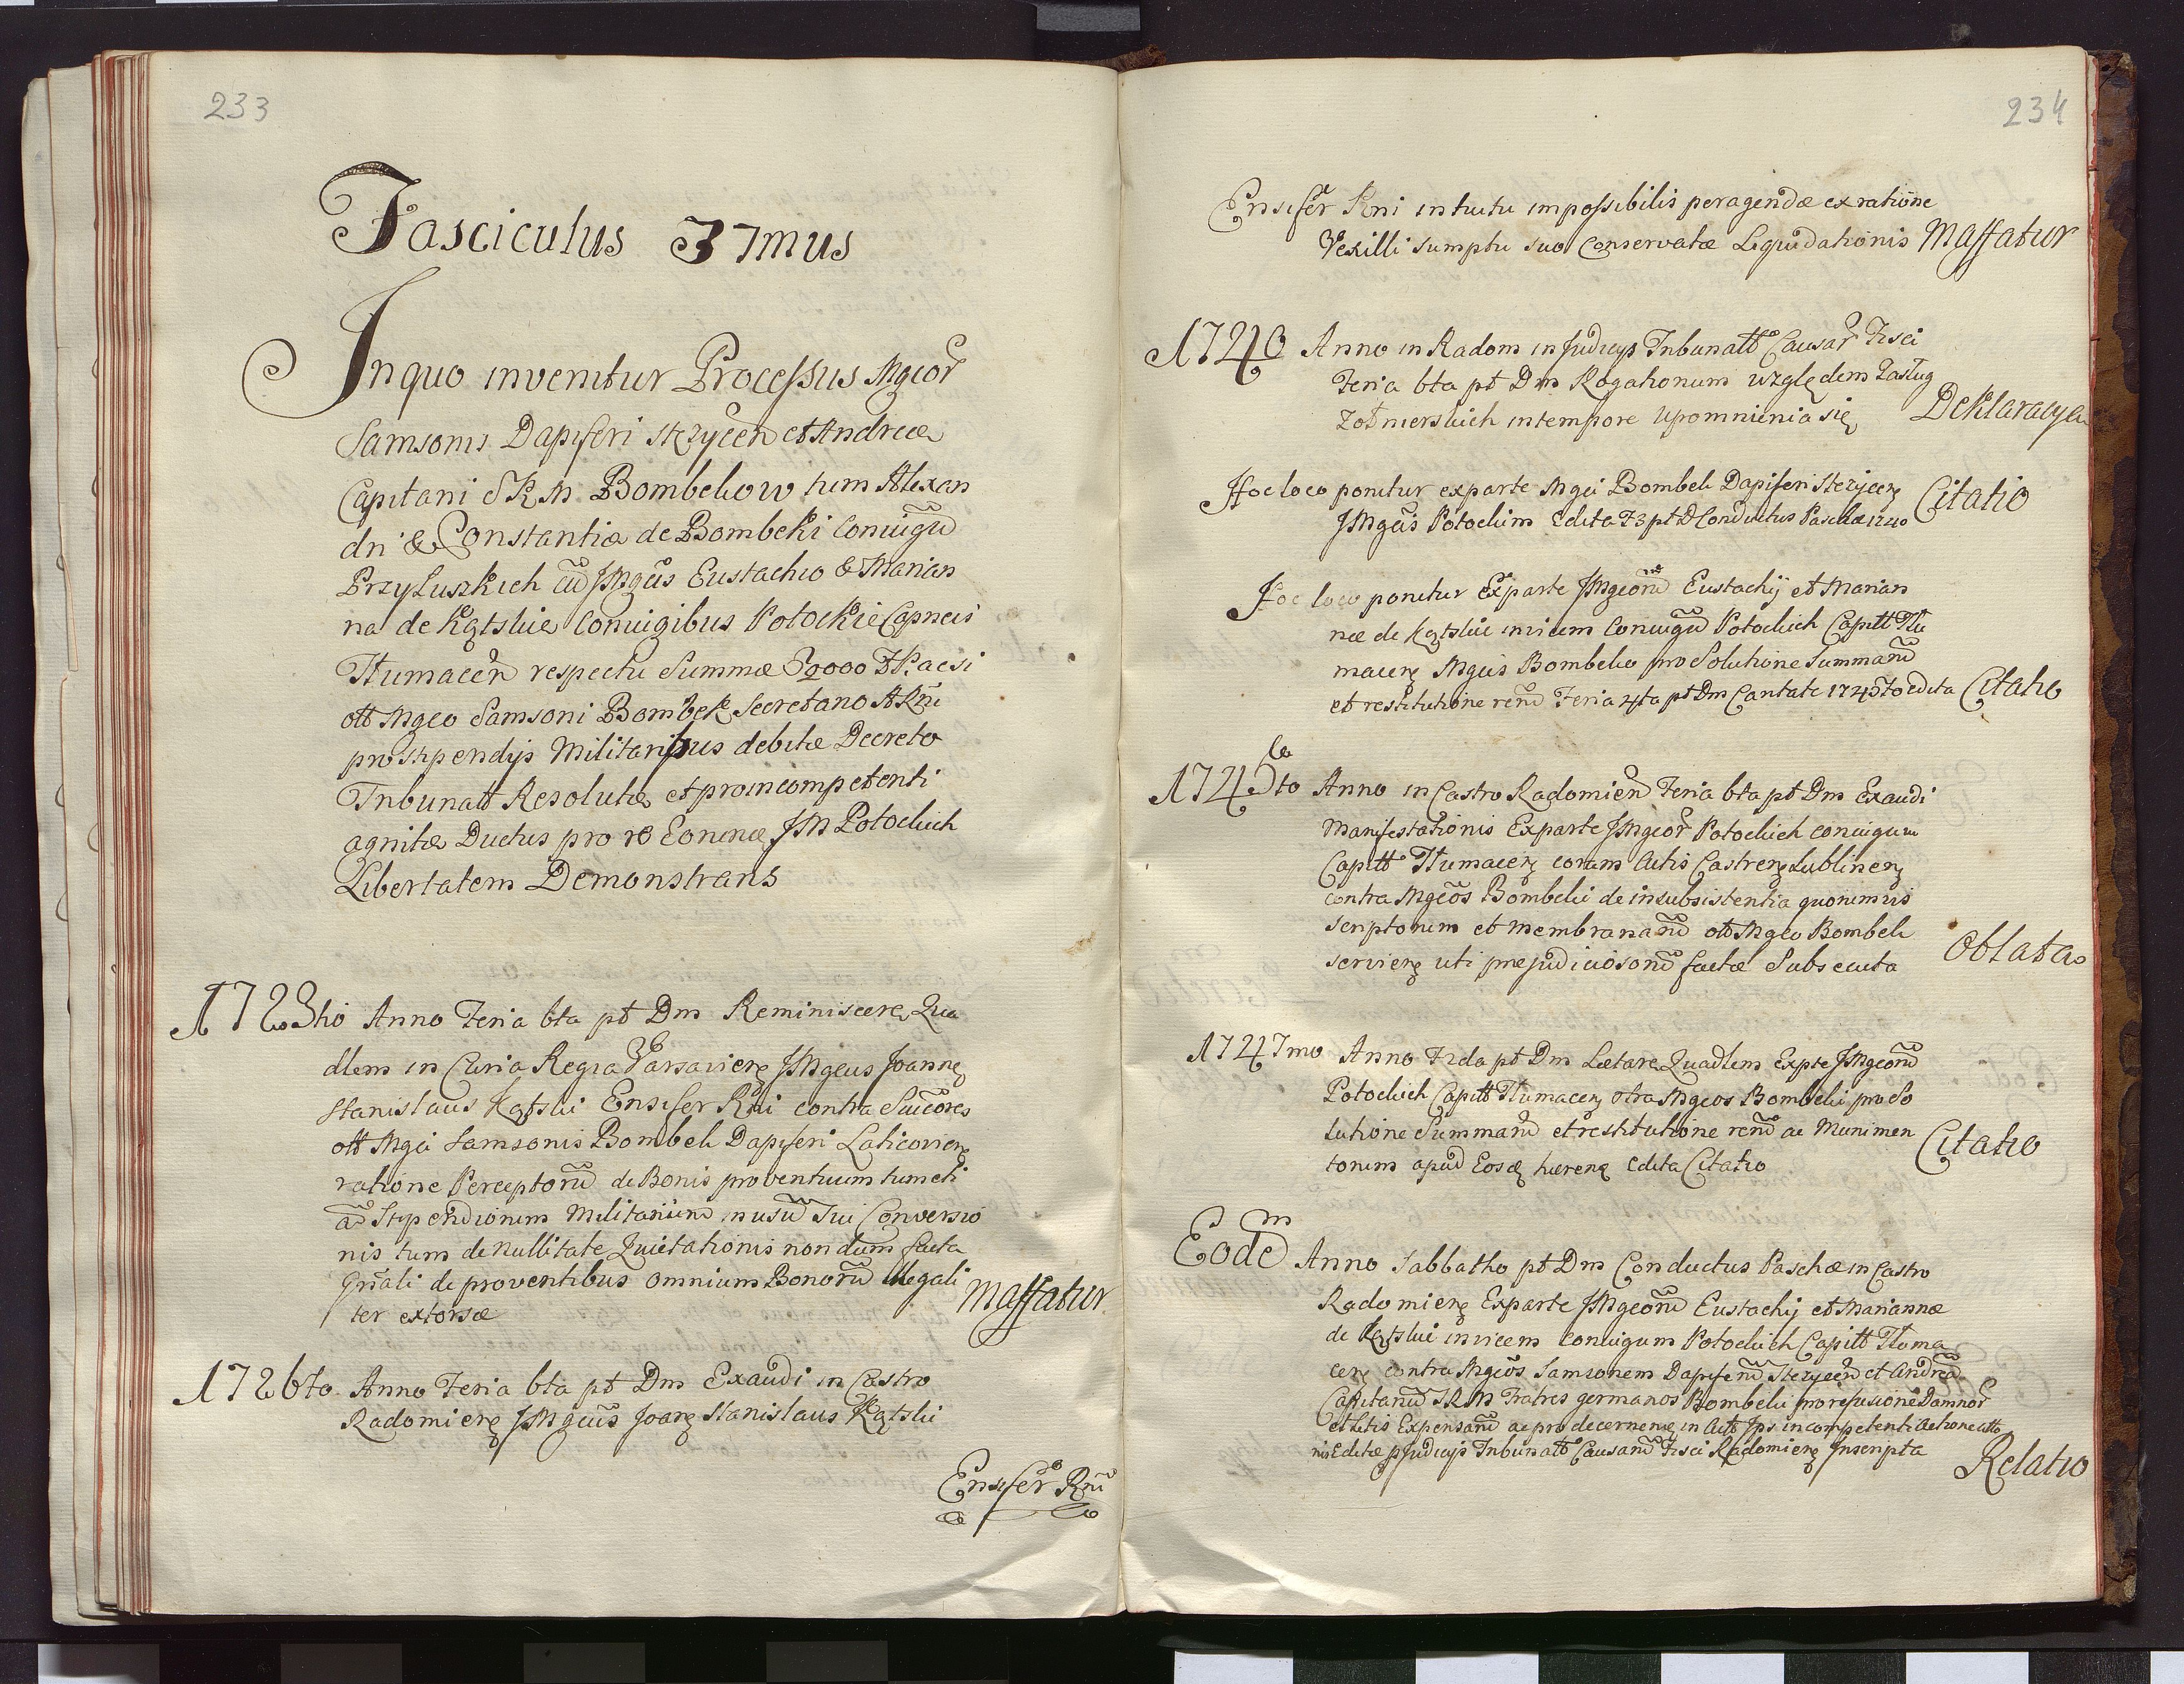 233
Fasciculus 37mus
In quo invenitur Processus Mgcor
Samsonis Dapiferi Stęzycen et Andreæ
Capitani SKM Bombekow tum Alexan
dri & Constantiæ de Bombeki Coniugū
Przyłuszkich cū JMgcis Eustachio & Marian
na de Kątskie Coniugibus Potockie Capneis
Tłumacen respectu Summæ 82000 FP. acsi
olt Mgco Samsoni Bombek Secretario SRM
pro stipendijs Militaribus debitæ Decreto
Tribunatt Resolutæ et pro incompetenti
agnitæ Ductus pro re Eorund JM Potockich
Libertatem Demonstrans
1723tio Anno Feria 6ta pt Dm Reminiscere Qua
dlem in Curia Regia Varsavieng JMgcus Joanneș
Stanislaus Kątski Ensifer Rni contra Succōres
olt Mgci Samsonis Bombek Dapiferi Laticovieng
ratione Perceptorū de Bonis proventuum tum eti
ā Stipendiorum Militarium in usū sui Conversio
nis tum de nullitate Quietationis non dum facta
Gnali de proventibus omnium Bonorū illegali
ter extorsæ
Massatur
1726to Anno Feria 6ta pt Dm Exaudi in Castro
Radomieng JMgcus Joang Stanislaus Kątski
Ensifer Rni
234
Ensifer Rni intuitu impossibilis peragendæ ex ratione
Vexilli sumptu suo Conservatæ Liquidationis Massatur
1740 Anno in Radom in Judicijs Tribunatt Causar Fisci
Feria 6ta pt Dm Rogationum względem Zasług
Żołnierskich in tempore upomnienia się Deklaracya
Hoc loco ponitur ex parte Mgci Bombek Dapiferi Stęzyceng
JMgcis Potockim Edita F3 pt D Conductus Paschæ 1740 Citatio
Hoc loco ponitur Ex parte JMgcorū Eustachij et Marian
næ de Kątskie invicem Coniugū Potockich Capitt Tłu
maceng Mgcis Bombekis pro Solutione Summarū
et restitutione rerū Feria 4ta pt Dm Cantate 1745to edita Citatio
1745to Anno in Castro Radomien Feria 6ta pt Dm Exaudi
Manifestationis Ex parte JMgcor Potockich coniugum
Capitt Tłumaceng coram Actis Castreng Lublineng
contra Mgcos Bombeki de insubsistentia quorumvis
Scriptorum et Membranarū olt Mgco Bombek
servieng uti præjudiciosorū factæ Subsecuta
Oblata
1747mo Anno F2da pt Dm Lætare Quadlem Exp[te] JMgcorū
Potockich Capitt Tłumaceng ctra Mgcos Bombeki pro So
lutione Summarū et restitutione rerū ac Munimen
torum apud Eosq hæreng Edita Citatio
Citatio
Eodē Anno Sabbatho pt Dm Conductus Paschæ in Castro
Radomieng Ex parte JMgcorū Eustachij et Mariannæ
de Kątskie invicem Coniugum Potockich Capitt Tłuma
ceng contra Mgcos Samsonem Dapiferū Stęzycen et Andreā
Capitanū SKM Fratres germanos Bombeki pro refusione Damnor
et Litis Expensarū ac pro decerneng in Actt Jps incompetenti Actione Citto
nis Editæ p Judicijs Tribunatt Causarū Fisci Radomieng Inscripta
Relatio